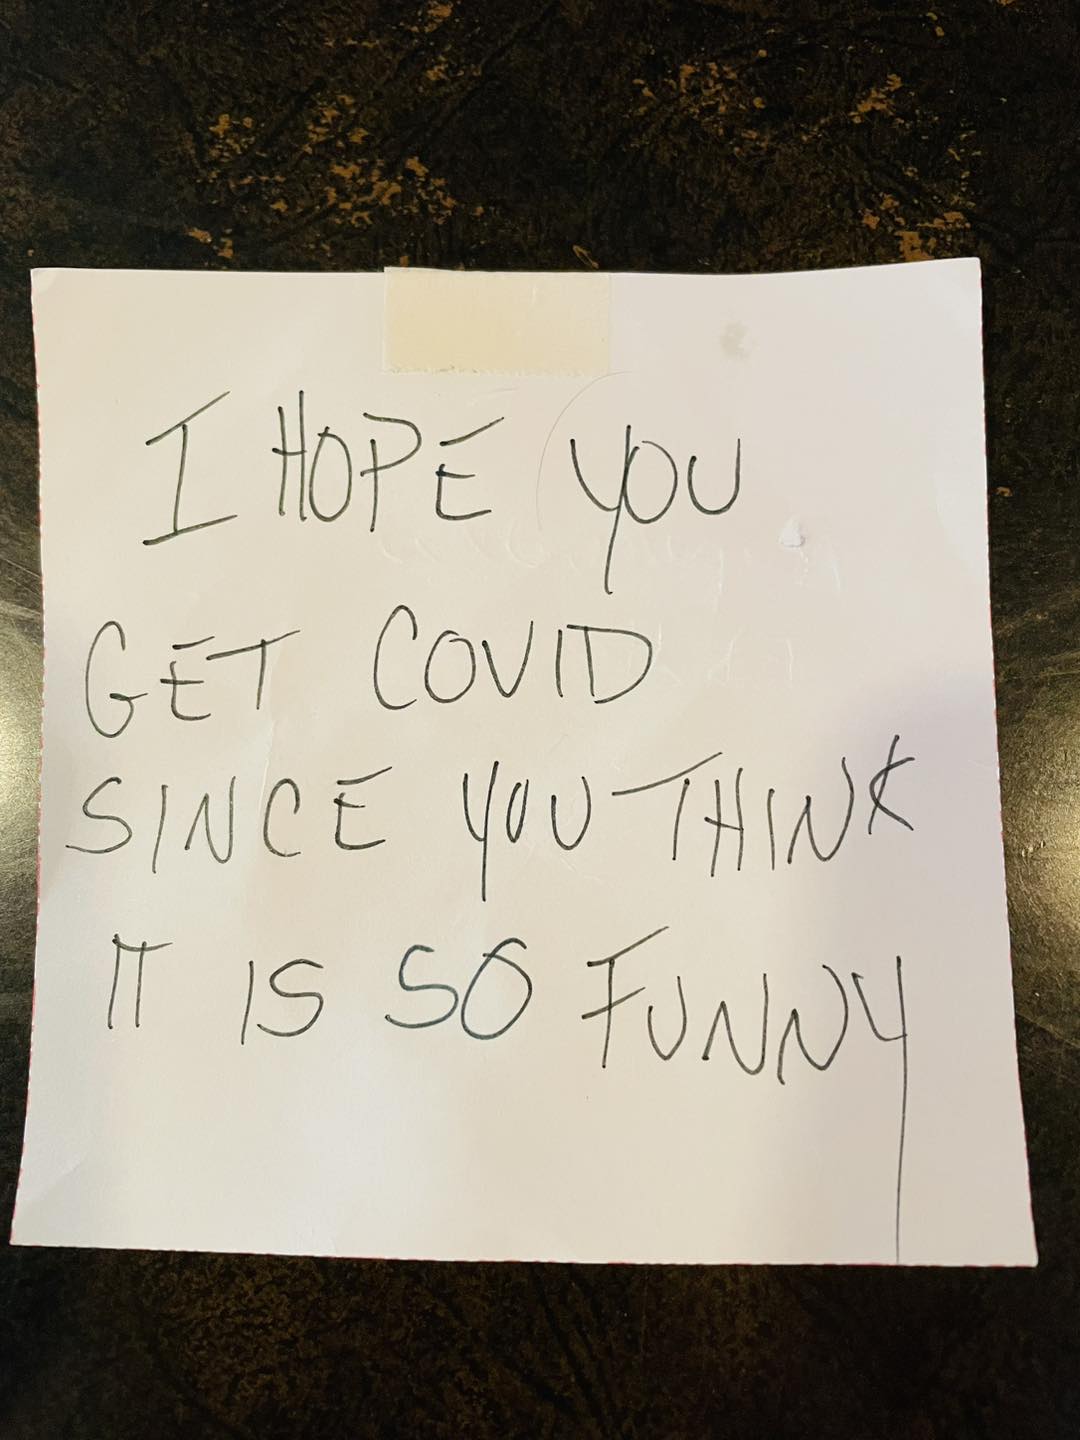 I HOPE YOU
GET COVID
SINCE YOU THINK
IT IS SO FUNNY